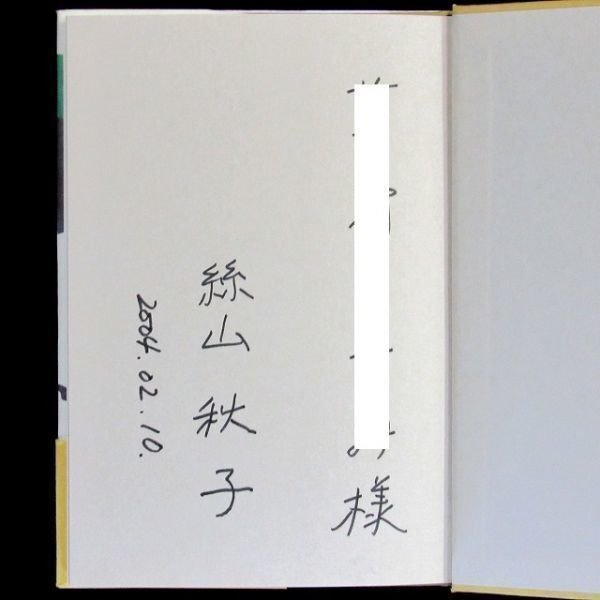 様
絲山秋子
2004.02.10.